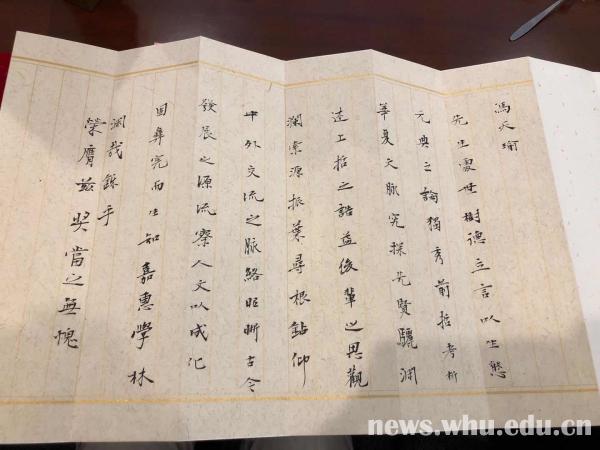 馮天瑜
先生處世樹德立言以生態
元典立論獨秀前哲考析
華夏文脈究探先賢驪淵
達上哲之語益後輩之思觀
瀾索源振葉尋根鉆仰
中外交流之脈絡昭晰古今
發展之源流察人文以成化
因彝憲而生知嘉惠學林
淵哉錄乎
榮膺茲奨當之無愧
news.whu.edu.cn